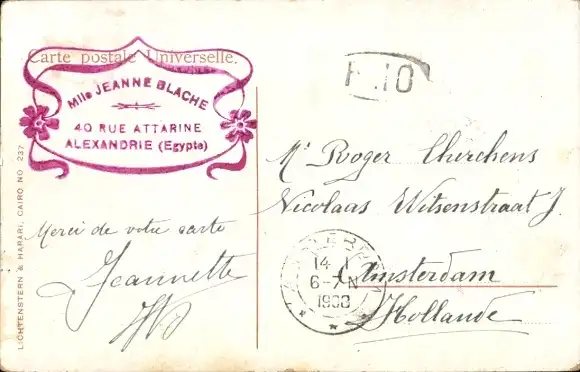 Carte postale Universelle.
Mlle JEANNE BLACHE
40 RUE ATTARINE
ALEXANDRIE (Egypte)
LICHTENSTERN & HARARI, CAIRO NO 237
Merci de votre carte
Jeannette
Mr Roger Cherchens
Nicolaas Witsenstraat
Amsterdam
Hollande
14 1
6-7N